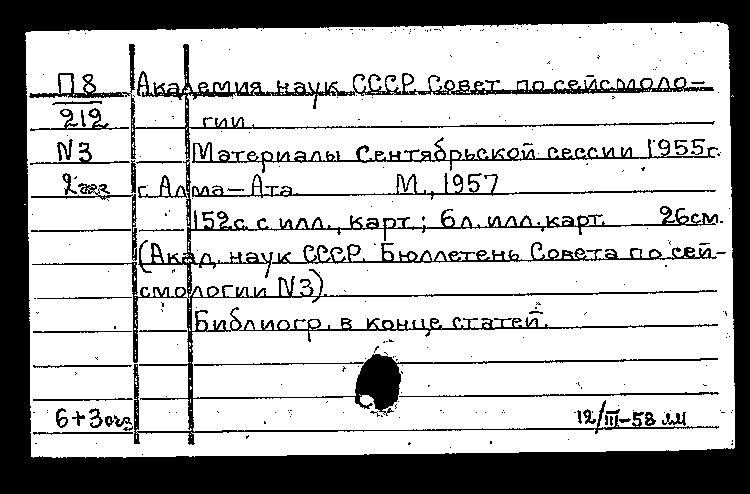 П8 Академия наук СССР. Совет по сейсмоло-
212 гии.
N3 Материалы Сентябрьской сессии 1955г.
2экз г. Алма-Ата. М., 1957
152с. с илл., карт.; 6л. илл., карт. 26см.
(Акад. наук СССР. Бюллетень Совета по сей-
смологии N3)
Библиогр. в конце статей.
6+3 12/III-58